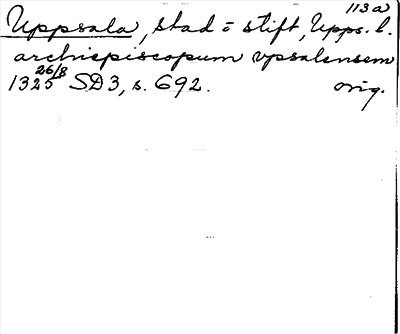 113a
Uppsala, stad o stift, Upps. l.
archiepiscopum vpsalensem
1325 26/8 SD3, s. 692. orig.